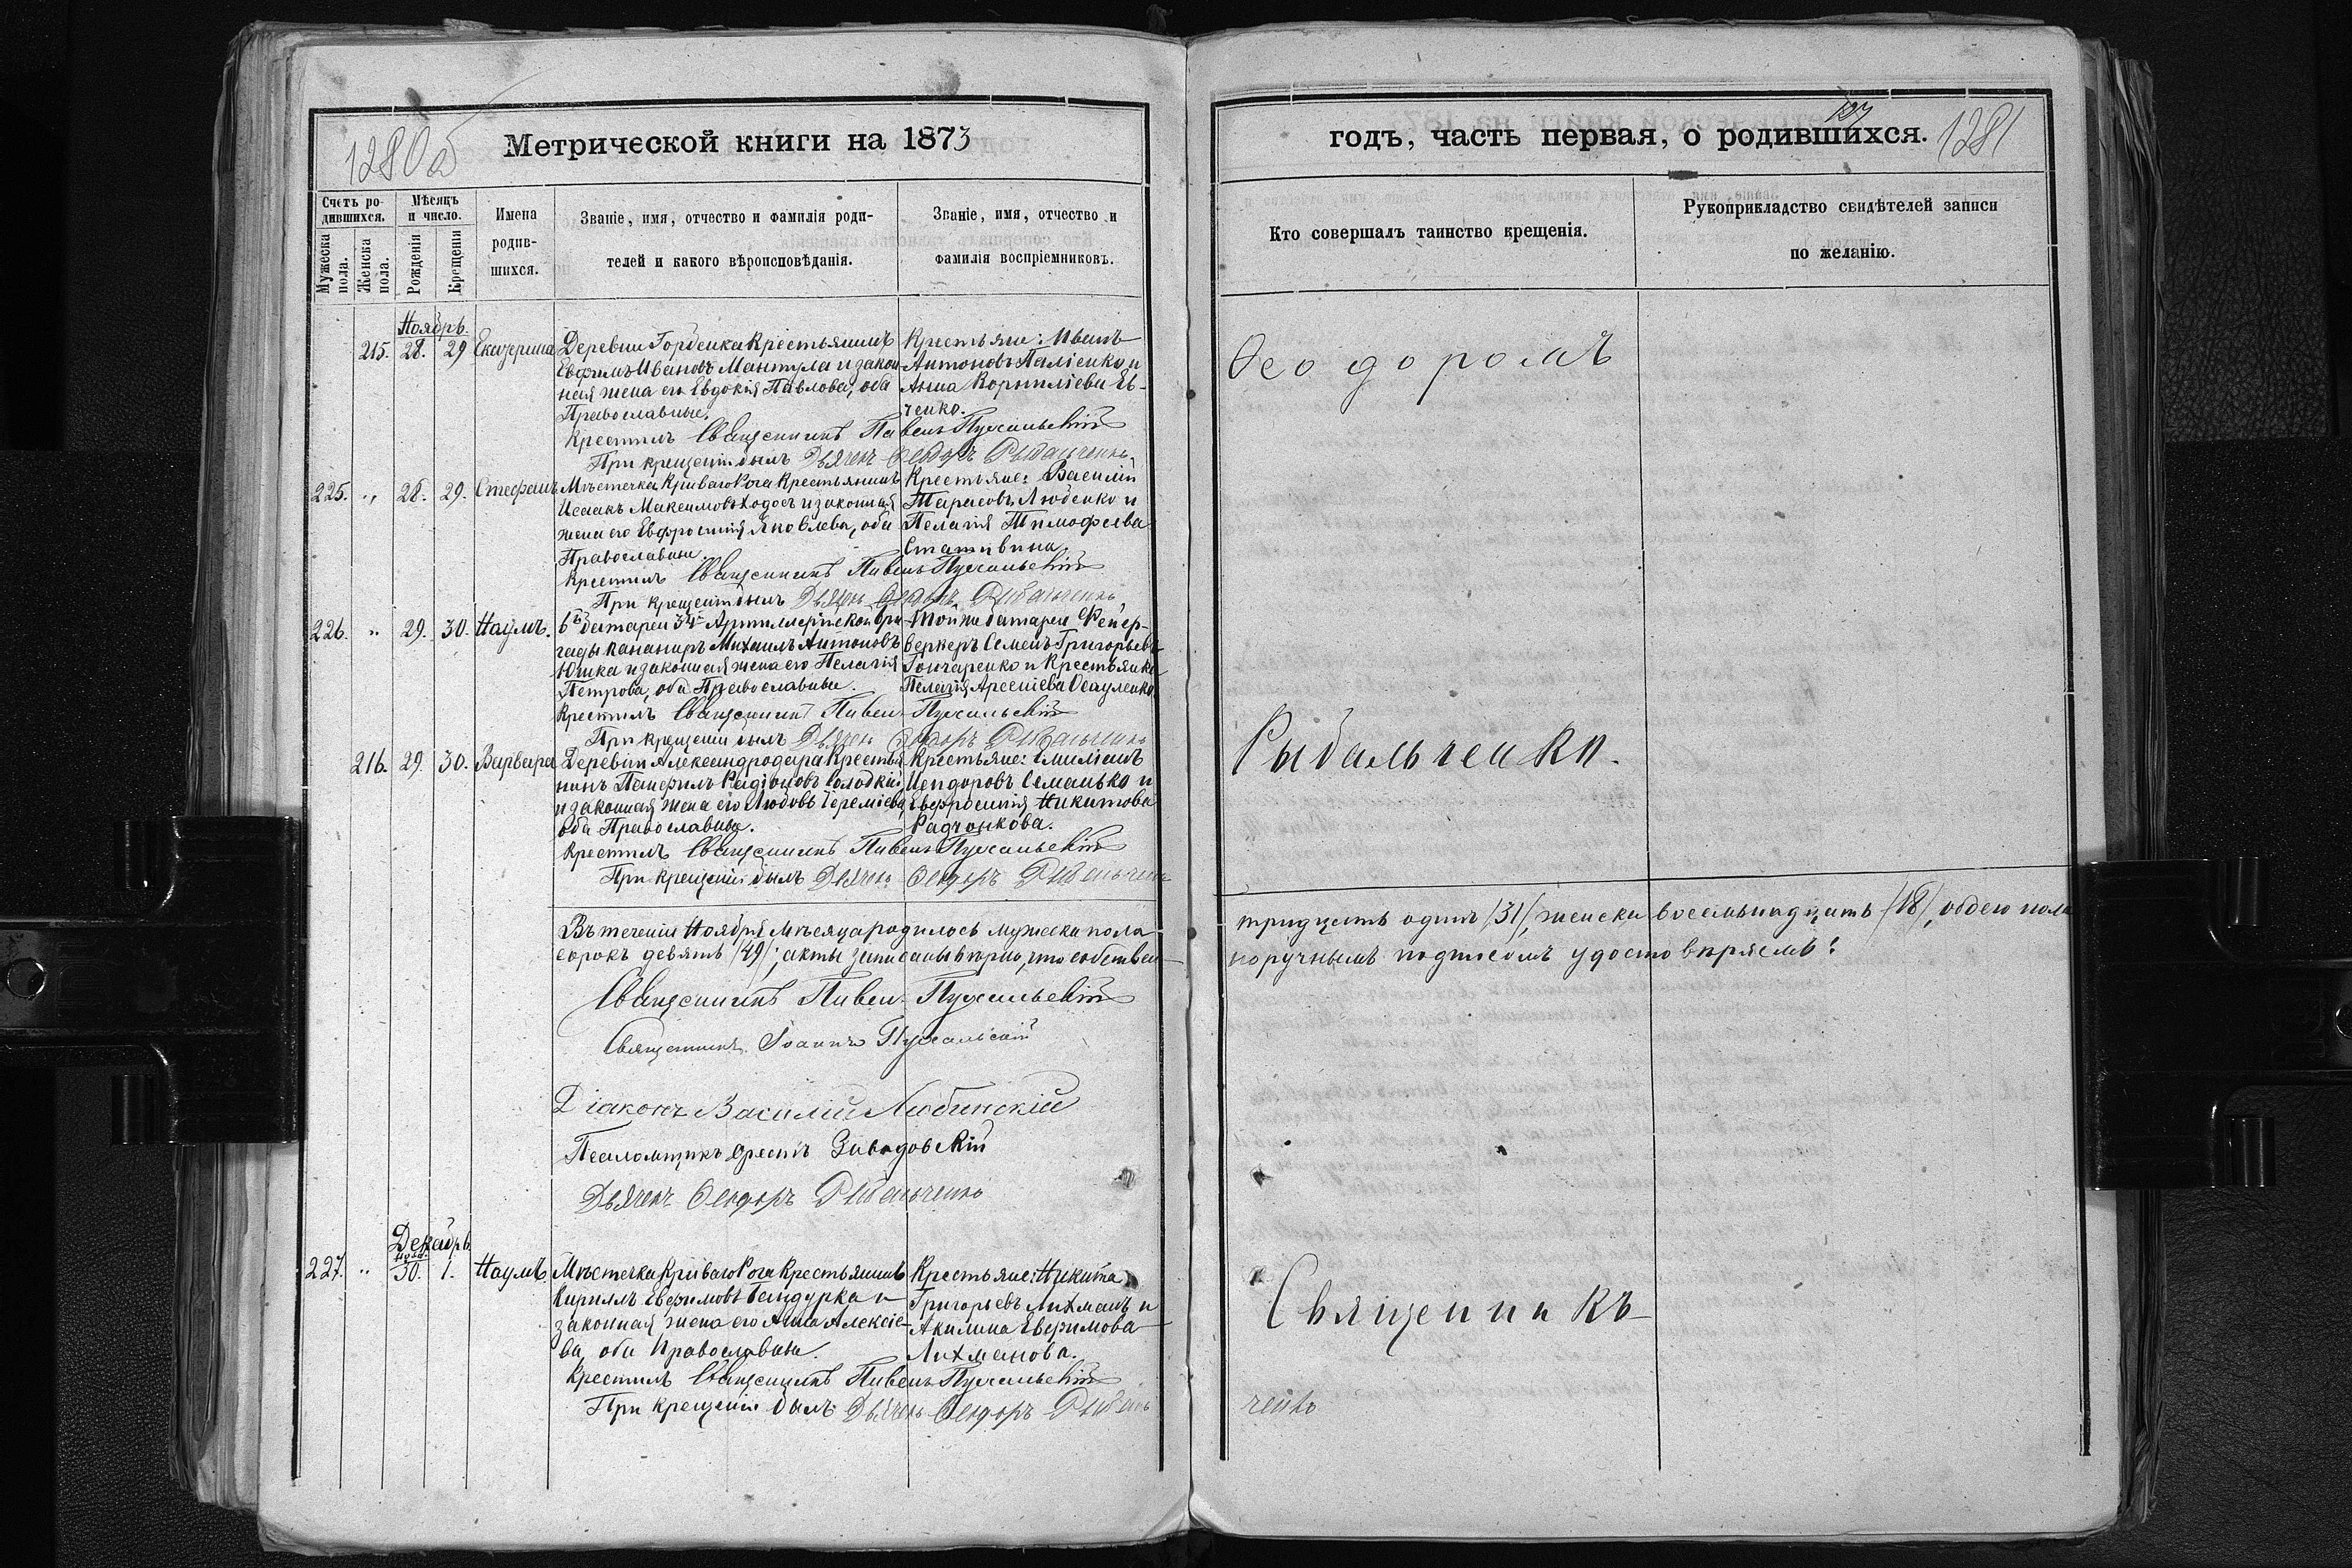 1280об
Метрической книги на 1873
Счетъ ро-
дившихся.
Мужеска
пола.
Женска
пола.
Мѣсяцъ
и число.
Рожденія
Крещенія
Имена
родив-
шихся.
Званіе, имя, отчество и фамилія роди-
телей и какого вѣроисповѣданія.
Званіе, имя, отчество и
фамилія воспріемниковъ.
Ноябрь.
215. 28. 29 Екатерина
Деревни Гордеики Крестьянинъ
Евфимъ Ивановъ Мантула и закон-
ная жена его Евдокія Павлова, оба
Православные.
Крестьяне: Иванъ
Антоновъ Паліенко и
Анна Корниліева Ев-
ченко.
Крестилъ Священникъ Павелъ Пухальскій
При крещеніи былъ Дьячекъ Ѳеодоръ Рыбальченко
225. „ 28. 29. Стефанъ
Мѣстечка Криваго Рога Крестьянинъ
Исаакъ Максимовъ Ходосъ и законная
жена его Евфросинія Яковлева, оба
Православные.
Крестьяне: Василій
Тарасовъ Люденко и
Пелагія Тимофеева
Стативина
Крестилъ Священникъ Павелъ Пухальскій
При крещеніи былъ Дьячекъ Ѳеодоръ Рыбальченко
226. „ 29. 30. Наумъ.
6й батареи 34й Артиллерійской бри-
гады канониръ Михаилъ Антоновъ
Юшка и законная жена его Пелагія
Петрова, оба Православные.
Той же батареи Феейер-
веркеръ Семенъ Григорьевъ
Гончаренко и Крестьянка
Пелагія Арсеніева Осауленко
Крестилъ Священникъ Павелъ Пухальскій
При крещеніи былъ Дьячекъ Ѳеодоръ Рыбальченко
216. 29. 30. Варвара
Деревни Александродара Крестья-
нинъ Панфилъ Радіоновъ Солодкій
и законная жена его Любовь Іереміева,
оба Православные.
Крестьяне: Емиліанъ
Сманько и
Евфросинія Никитова
Радчонкова.
Крестилъ Священникъ Павелъ Пухальскій
При крещеніи былъ Дьячекъ Ѳеодоръ Рыбальченко
Въ теченіи Ноября мѣсяца родилось мужеска пола
сорокъ девять /49/; акты записаны вѣрно, что собствен-
Священникъ Павелъ Пухальскій
Священникъ Іоаннъ Пухальскій
Діаконъ Василій Любинскій
Псаломщикъ Орестъ Завадовскій
Дьячекъ Ѳеодоръ Рыбальченко
Декабрь
нояб.
227. „ 30. 1. Наумъ.
Мѣстечка Криваго Рога Крестьянинъ
Кирилъ Евфимовъ Бандурка и
законная жена его Анна Алексіе-
ва, оба Православные.
Крестьяне: Никита
Григорьевъ Лихманъ и
Акилина Евфимова
Лихманова.
Крестилъ Священникъ Павелъ Пухальскій
При крещеніи былъ Дьячекъ Ѳеодоръ Рыбаль
127
годъ, часть первая, о родившихся. 1281
Кто совершалъ таинство крещенія.
Рукоприкладство свидѣтелей записи
по желанію.
Ѳеодоромъ
Рыбальченко.
тридцать одинъ /31/, женска восемьнадцать /18/, обоего пола
норучнымъ подписомъ удостовѣряемъ:
Священникъ
ченко